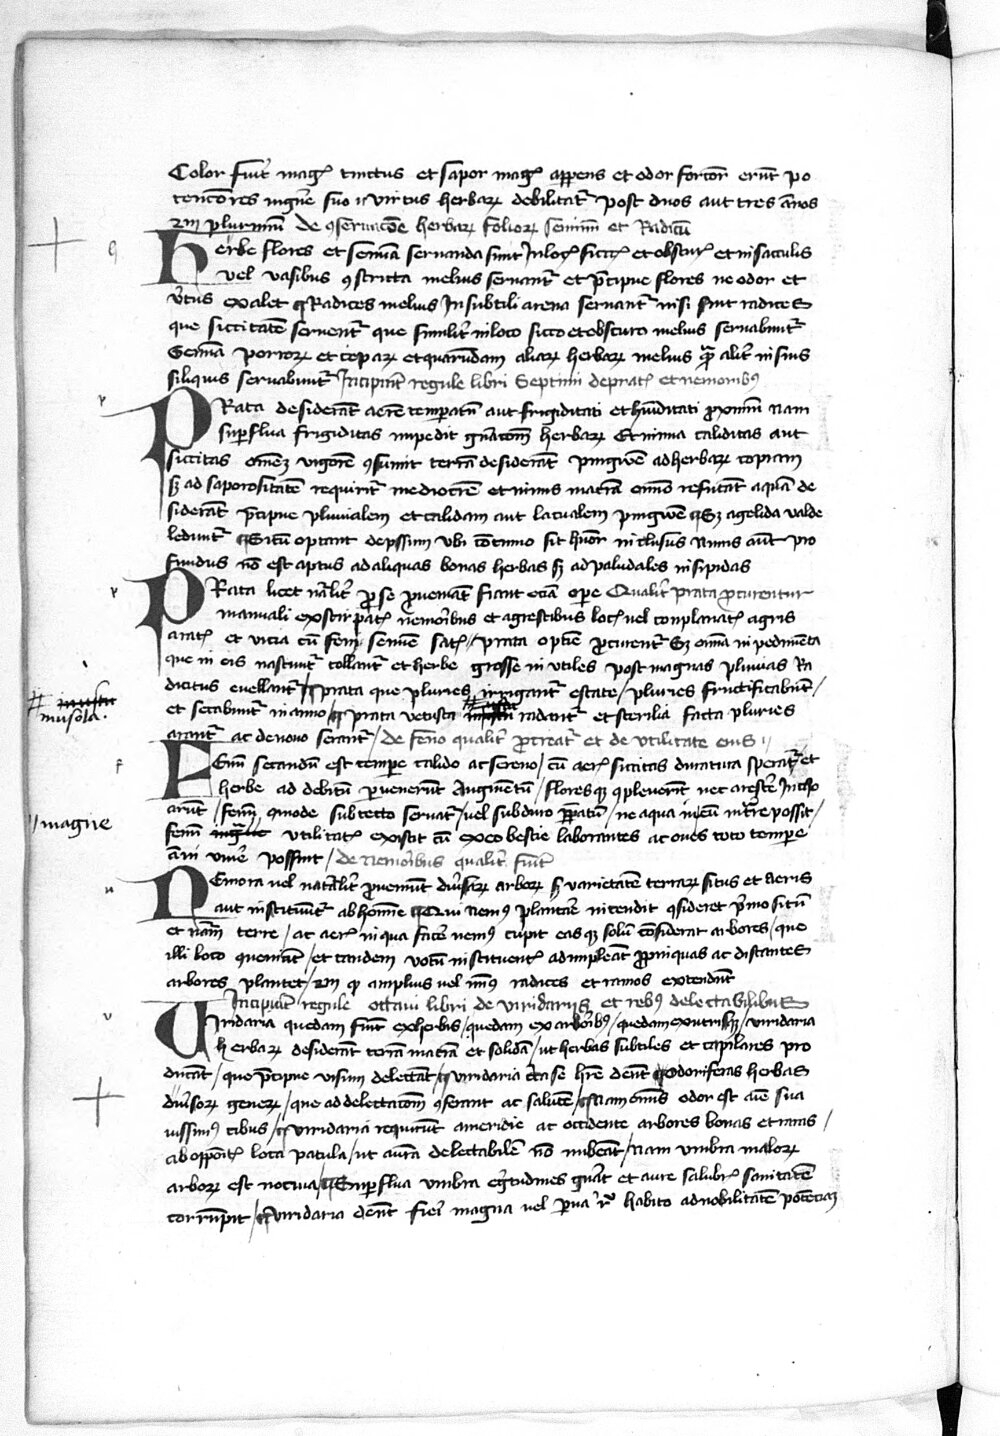 Color fuit mag͛ tinctus et sapor mag͛ apparens et odor fortior erūt po
tenciores in gn̄e suo ⁊ virtus herbaꝝ debilitat᷑ post duos aut tres ānos
ꝛm plurimū de ꝯservacōe herbaꝝ folioꝝ seminū et Radicū
herbe flores et semina servanda sunt in loc͛ sicc͛ et obscur͛ et in sacculis
vel vasibus ꝯstricta melius servant᷑ et p̄cipue flores ne odor et
v̄tus exalet ¶ Radices melius In subtili arena servant᷑ nisi sint radices
que siccitatē servent᷑ que similit̄ in loco sicco et obscuro melius servabunt᷑
Semīa porroꝝ et cepaꝝ et quarūdam aliaꝝ herbaꝝ melius qᷓ alit̄ in suis
siliquis servabunt᷑ Incipiūt regule libri Septimi de prat͛ et nemoribꝰ
PRata desiderāt aerē temperatū aut frigiditati et hūiditati ꝓximū nam
suꝑflua frigiditas impedit gn̄acōem herbaꝝ Et nimia caliditas aut
siccitas omnē vigorē ꝯsumit terrā desiderāt pingwē ad herbaꝝ copiam
sꝫ ad saporositatē requirūt mediocrē et nimis macrā omīo refutāt aquā de
siderāt p̄cipue pluvialem et calidam aut lacualem pingwē ¶ Sꝫ a gelida valde
ledunt᷑ ¶ Situ optant depssum vbi cōtinuo sit hūor inclusus nimis aūt pro
fundus nō est aptus ad aliquas bonas herbas sꝫ ad paludales insipidas
PRata licet nālit̄ ꝑ se ꝓveniāt fiant eciā oꝑe Qualit̄ prata ꝓcurentur
manuali exstirpat͛ nemoribus et agrestibus loc͛ vel conplanat͛ agris
arat͛ et vicia cū feni semine sat͛ / prata optīe ꝓcurent᷑ Sꝫ omīa inpedimēta
que in eis nascunt᷑ tollant᷑ et herbe grosse inutiles post magnas pluvias Ra
dicitus evellant᷑ ¶ prata que pluries irrigant᷑ estate / pluries fructificabūt /
et secabunt᷑ in anno / ¶ prata vetusta radant᷑ et sterilia facta pluries
arant᷑ ac denovo serant᷑ / de feno qualit̄ ꝓcreat᷑ et de vtilitate eius
musōla.
FEnū secandū est temꝑe calido ac sereno / cū aer͛ siccitas duratura sperat᷑ et
herbe ad debitū ꝑvenerūt Augmentū / flores qꝫ ꝯpleverūt nec arescere Inchō
arūt / fenū quōde sub tecto servat᷑ / vel sub divo ꝑparatū / ne aqua in eū intrare possit /
// magne
fenū utilitat͛ existit cū ex eo bestie laborantes ac oves toto temꝑe
āni vivere possunt / de nemoribus qualit̄ fiūt
NEmora vel nat̄alit̄ ꝓveniūt div̄saꝝ arboꝝ sꝫ varietatē terraꝝ situs et aeris
aut instituūt᷑ ab homīe ¶ Qui nemꝰ plantare intendit ꝯsideret p̄mo sitū
et nāam terre / ac aer͛ in qua facere nemꝰ cupit eas qꝫ solū cōsiderat arbores / que
illi loco ꝯveniāt / et tandem votū instituent᷑ adimpleāt ꝓpinquas ac distantes
arbores plantet / ꝛm ꝙ amplius vel minꝰ radices et ramos extendūt
Incipiūt regule octavi libri de viridariis et rebꝰ delectabilibus
Viridaria quedam fiūt ex herbis / quedam ex arboribꝰ / quedam ex utrisqꝫ / viridaria
herbaꝝ desiderāt terrā macrā et solidā / ut herbas subtiles et capilares pro
ducāt / que p̄cipue visum delectāt / ¶ viridaria circa se habere debēt ¶ odoriferas herbas
div̄soꝝ geneꝝ / que ad delectacōem ꝯferant ac salutē / ¶ Nam omīs odor est aīe sua
vissimꝰ cibus / ¶ viridaria requirūt a meridie ac occidente arbores bonas et raras /
ab oppōit͛ loca patula / ut aurā delectabilē nō inibeāt / nam umbra maloꝝ
arboꝝ est nociva / ¶ Suꝑflua umbra egritudines gn̄at et aure salubr͛ sanitatē
corrūpit / ¶ viridaria debēt fieri magna vel parva habito ad nobilitatē potēciaꝫ